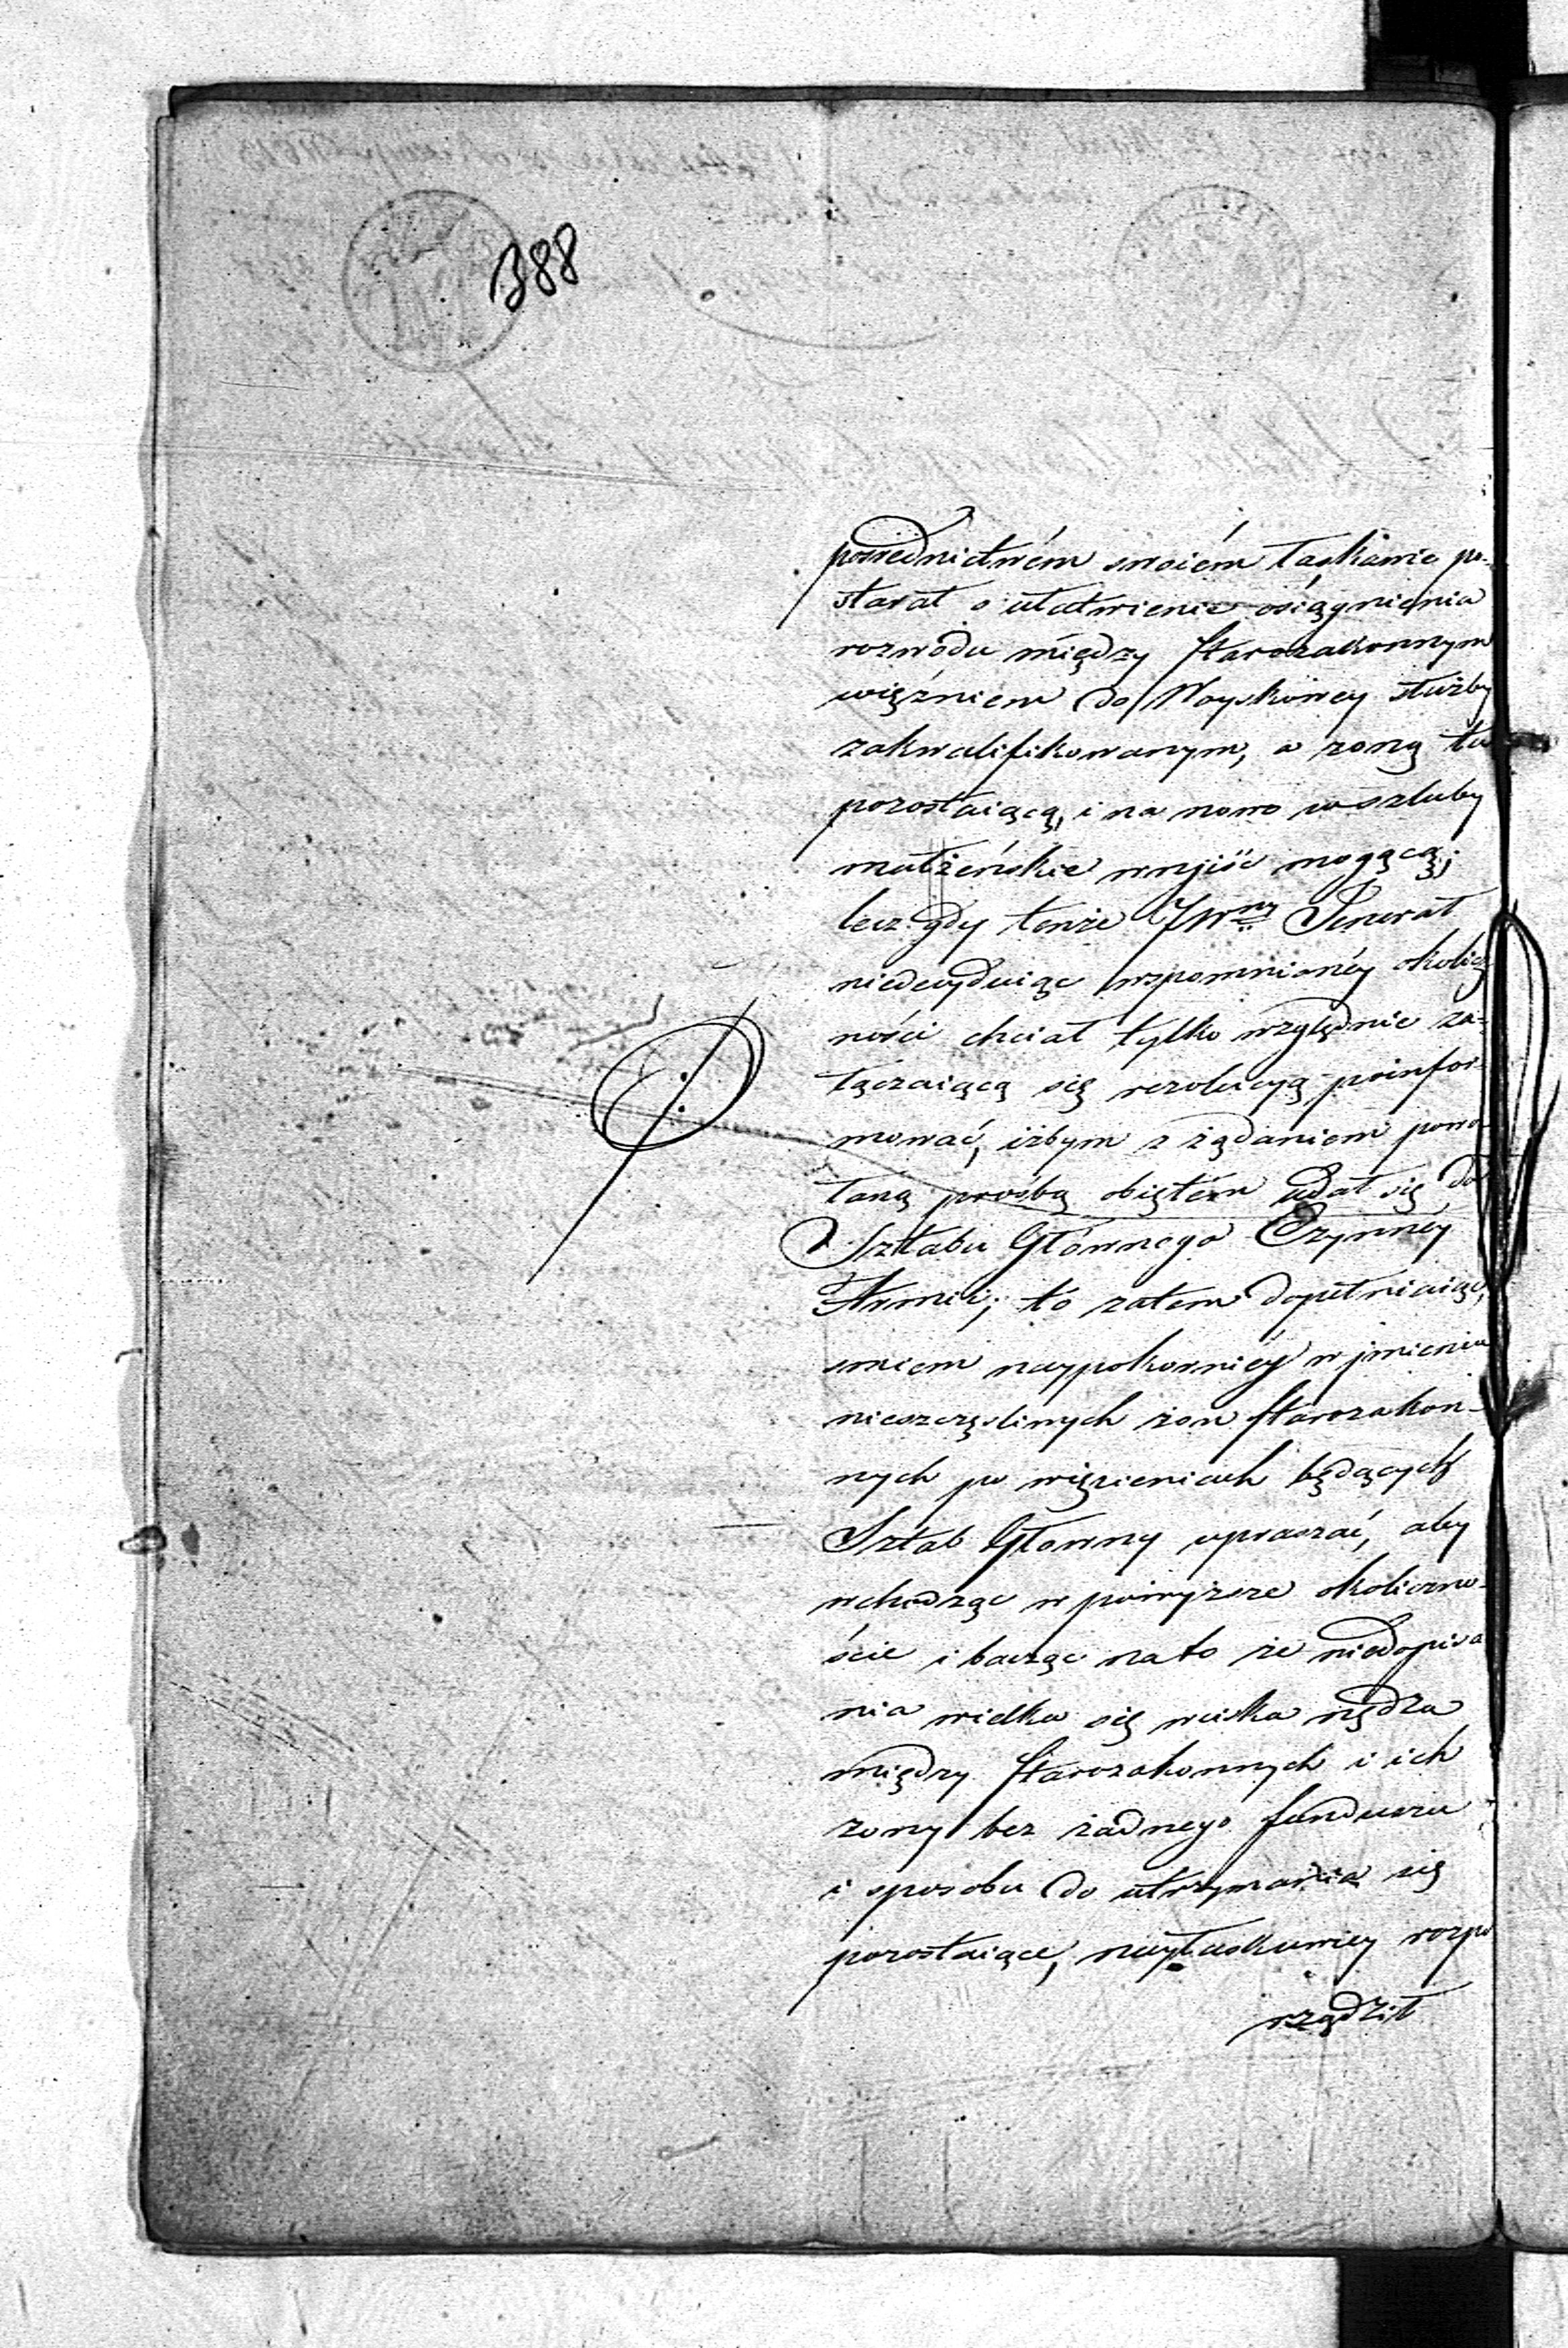 388
pośrednictwém swoiém łaskawie po-
starał o ułatwienie osiągnienia
rozwodu między starozakonnym
więźniem do Woyskowey służby
zakwalifikowanym, a żoną tu
pozostaiącą, i na nowo w szluby
małżeńskie wnijść mogącą;
lecz gdy tenże JWny Jenerał
niedecyduiąc wspomnionéy okolicz
ności chciał tylko względnie za-
łączaiącą się rezolucyą poinfor-
mować, iżbym z żądaniem powo
łaną prośbą obiętém udał się do
Sztabu Głównego Czynnéy
Armii; to zatem dopełniaiąc,
smiem naypokorniéy w jmieniu
nieszczęśliwych żon starozakon-
nych po więzieniach będących
Sztab Główny upraszać, aby
wchodząc w powyższe okoliczno-
ście i bacząc na to że niedopisa
nia wielka się wciska nędza
między starozakonnych i ich
żony bez żadnego funduszu
i sposobu do utrzymania się
pozostaiące, nayłaskawiey rozpo
rządził